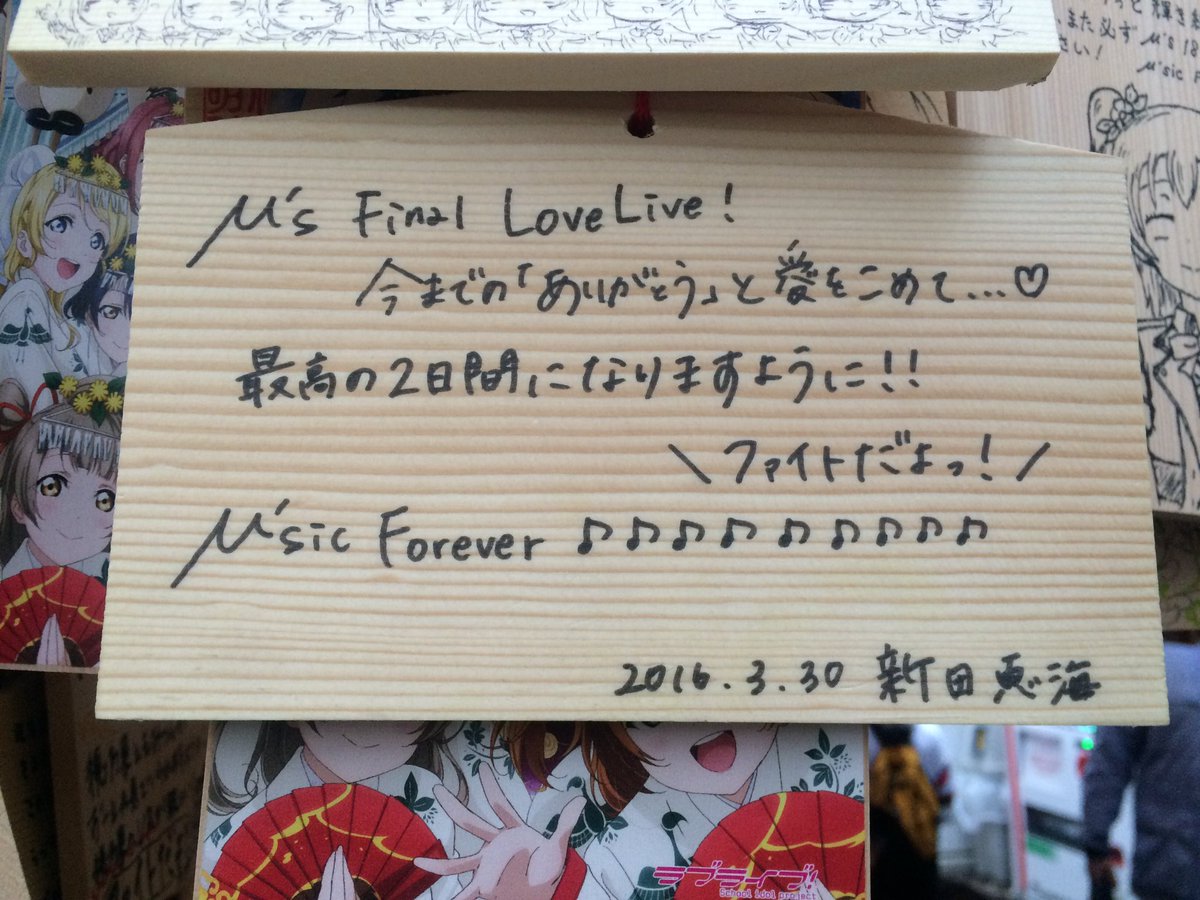 っと輝き
、また必ず
μ's 18
さい!
μ'sic F
μ's Final LoveLive!
今までの「ありがとう」と愛をこめて...♡
最高の2日間になりますように!!
\ファイトだよっ!/
μ'sic Forever ♪♪♪♪♪♪♪♪♪
2016.3.30 新田恵海
ラブライブ!
School idol project